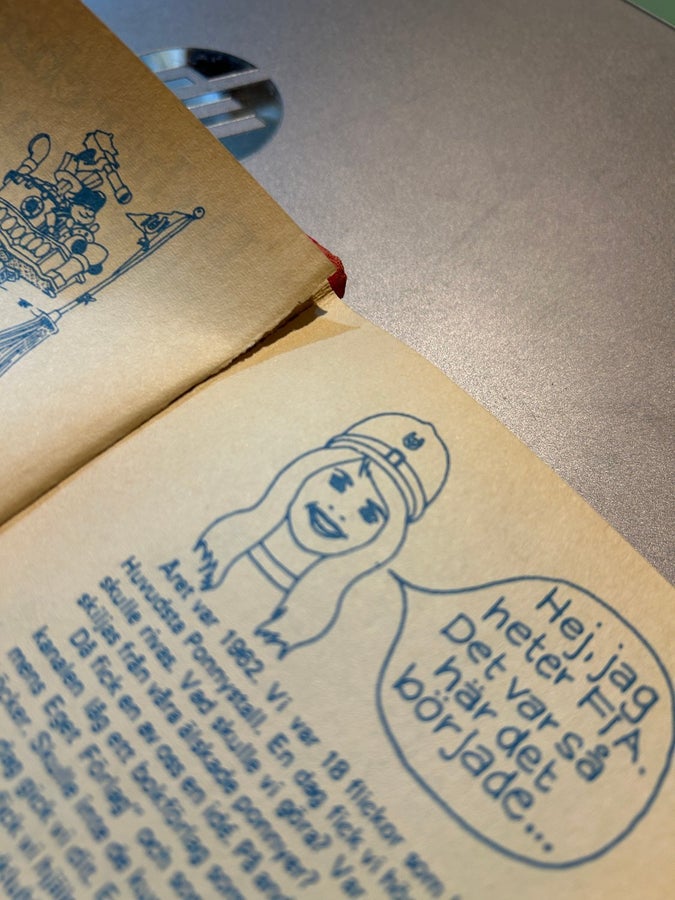 Hej, jag
heter FIA.
Det var så
här det
började...
Året var 1962. Vi var 18 flickor som
Huvudsta Ponnystall. En dag fick vi
skulle rivas. Vad skulle vi göra? Var
skiljas från våra älskade ponnyer?
Då fick en av oss en idé. På
kanalen låg ett bokförlag som
mens Eget Förlag" och
Skulle inte de
dag gick vi dit.
fick vi